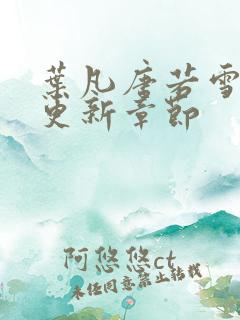 葉凡唐若雪
更新章節
阿悠悠ct
未经同意禁止转载